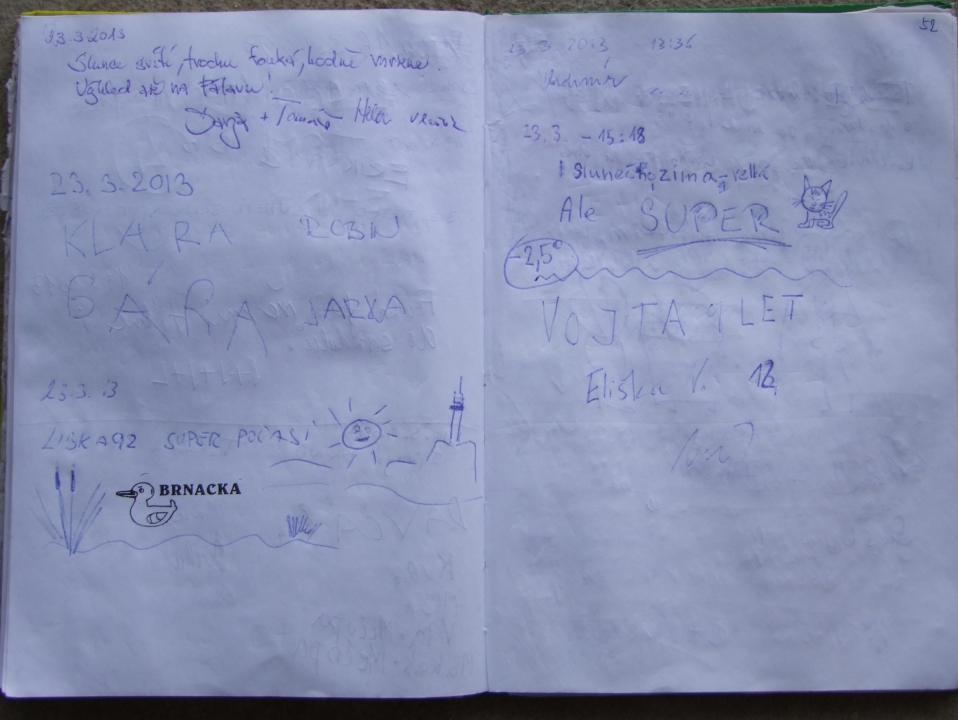 23.3.2013
Slunce svítí, trochu fouká, hodně
Výhled až na Pálavu!
+ Tomáš
23.3.2013
KLÁRA ROBIN
BÁRA JARKA
23.3.13
LISKA92 SUPER POČASÍ
BRNACKA
52
23.3.2013 13:35
Vladimír
23.3. - 15:18
zima - velká
Ale SUPER
-2,5°
VOJTA 9 LET
Eliška V. 12